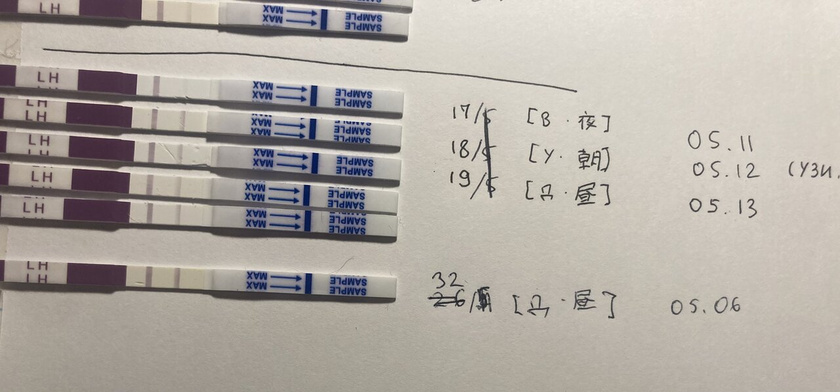 LH MAX SAMPLE
LH MAX SAMPLE
LH MAX SAMPLE
LH MAX SAMPLE
LH MAX SAMPLE
LH MAX SAMPLE
17/5 [В · 夜] 05.11
18/5 [У · 朝] 05.12 (УЗИ.
19/5 [Д · 昼] 05.13
LH MAX SAMPLE
32
26/ [Д · 昼] 05.06